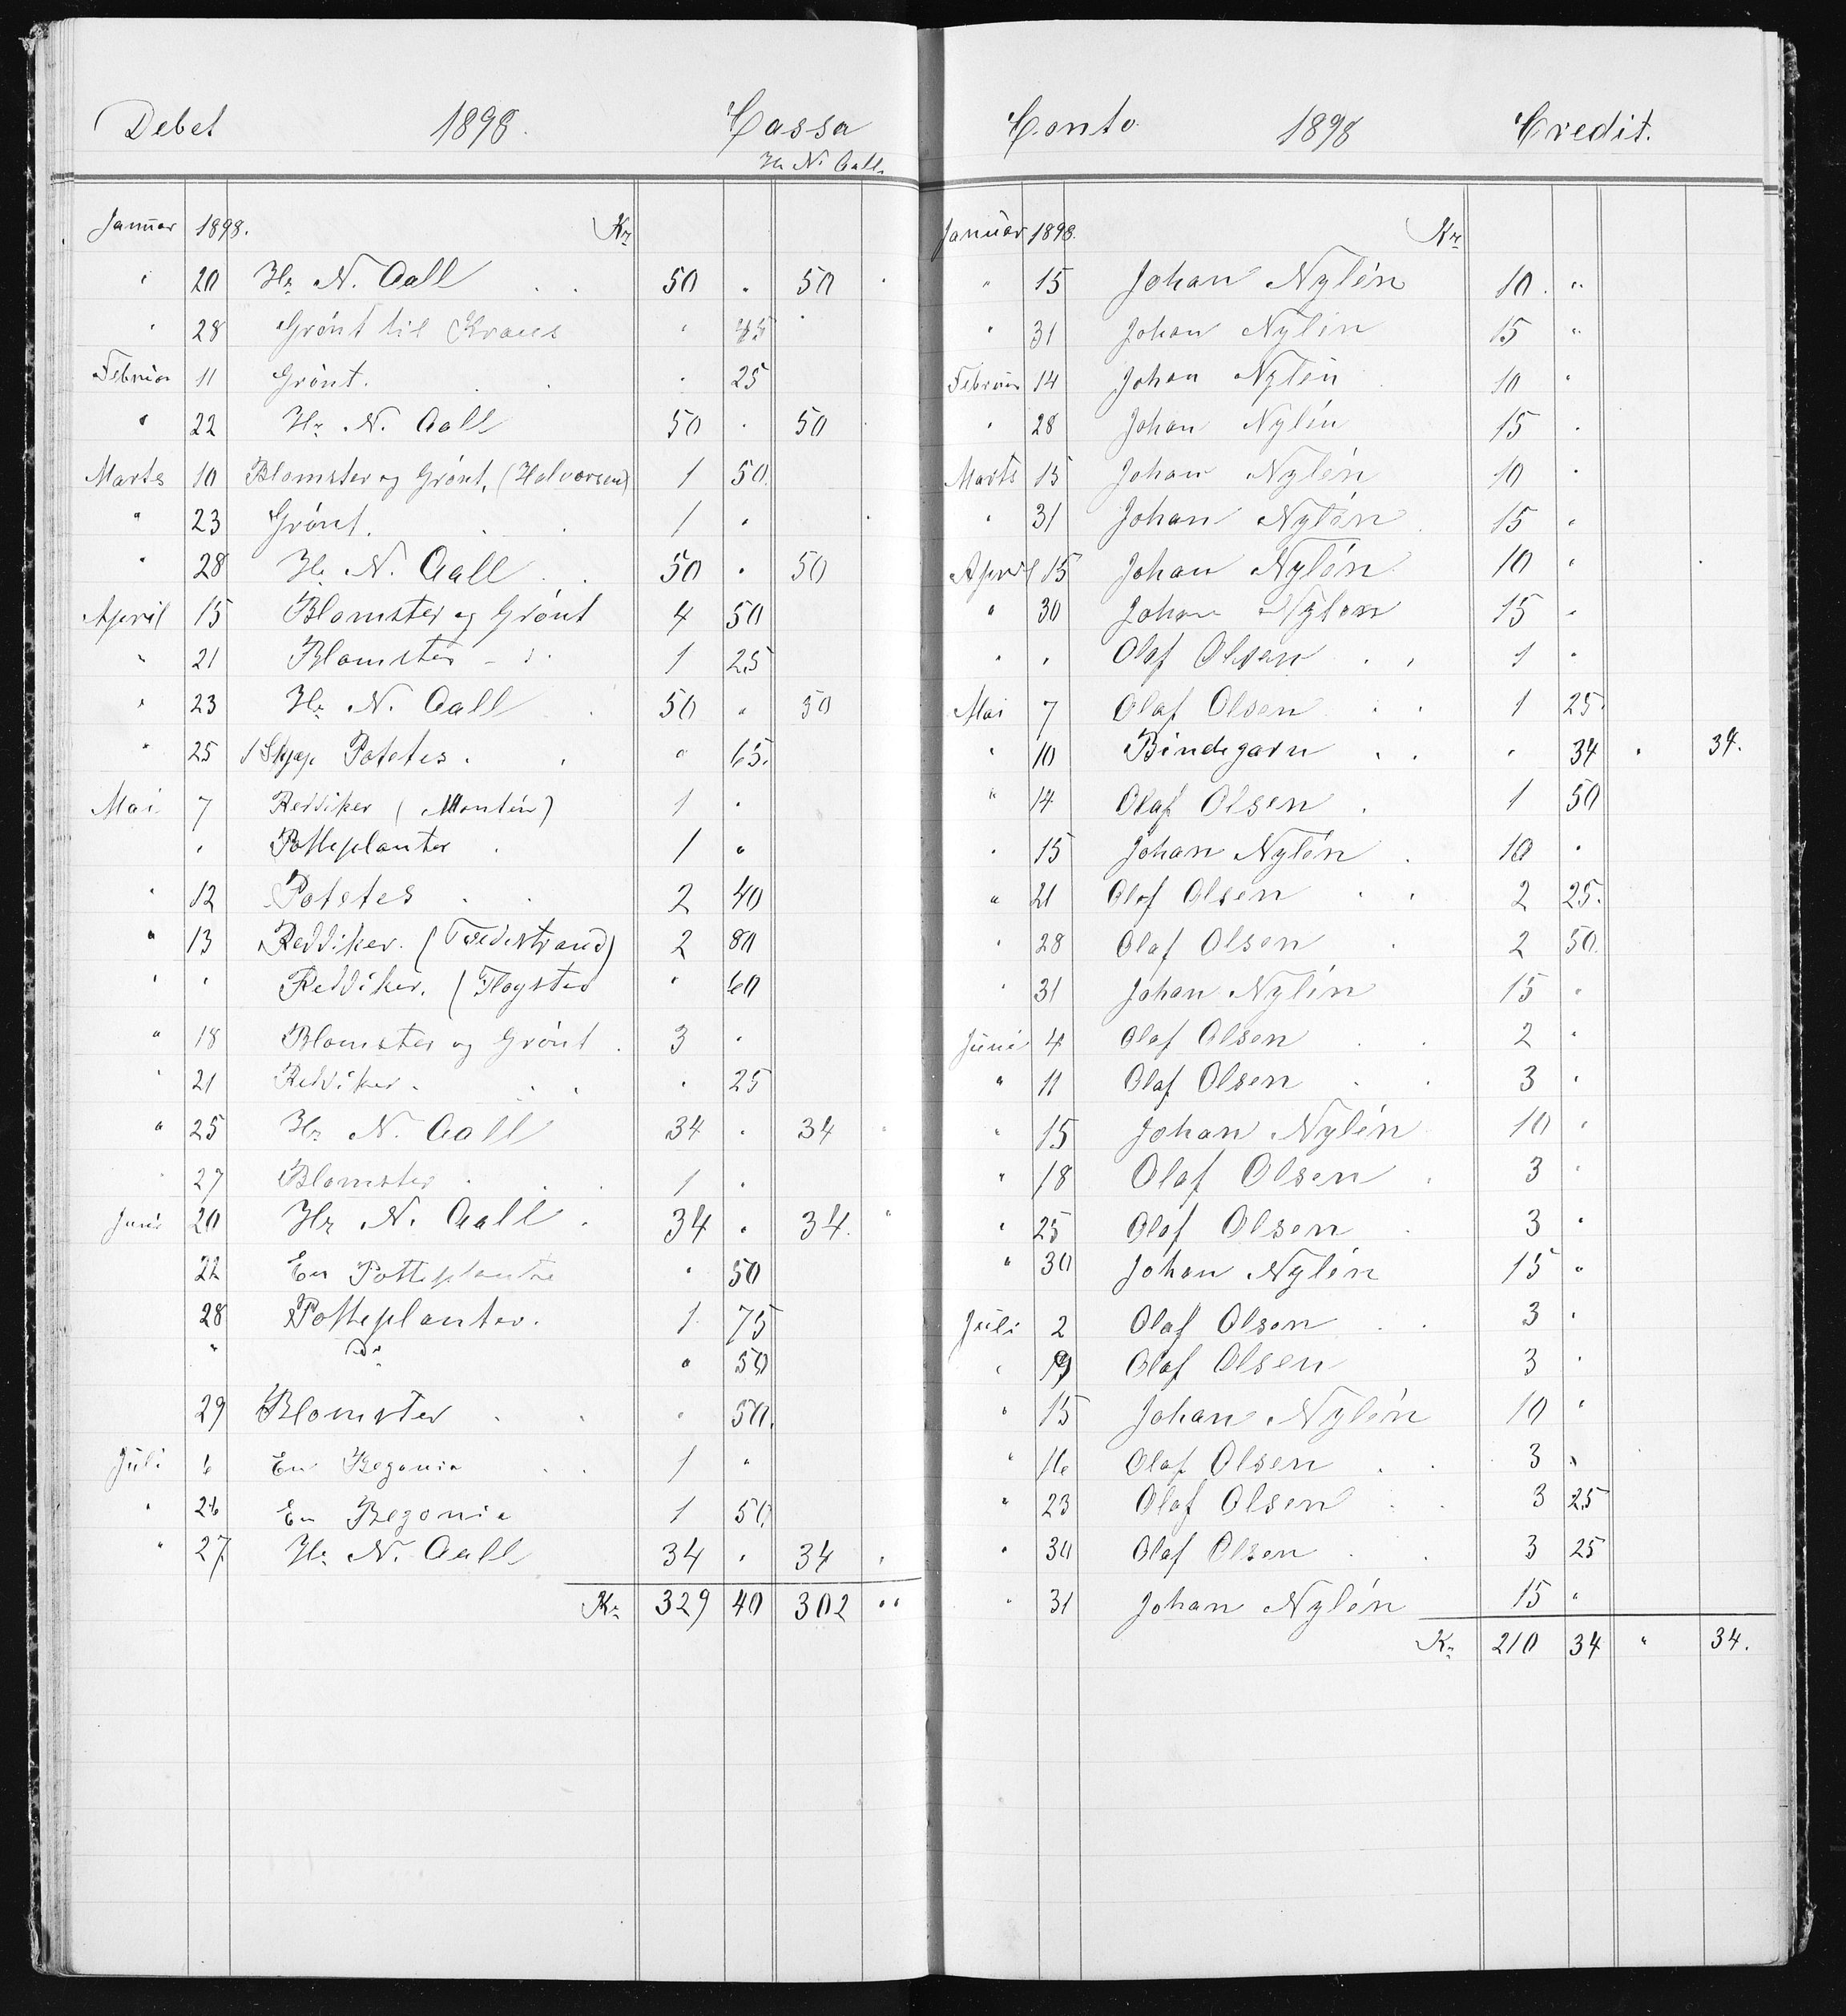 Debet 1898. Cassa
Hr N. Aall.
Januar 1898. Kr
" 20 Hr N. Aall 50 " 50 "
" 28 Grönt til Krans " 45
Februar 11 Grönt. " 25
" 22 Hr N. Aall 50 " 50
Marts 10 Blomster og Grönt, (Halvorsen) 1 50
" 23 Grönt. 1 "
" 28 Hr N. Aall 50 " 50
April 15 Blomster og Grönt 4 50
" 21 Blomster 1 25
" 23 Hr N. Aall 50 " 50
" 25 1 Skjap Potetes. " 65.
Mai 7 Reddiker (Monlén) 1 "
" Potteplanter 1 "
" 12 Potetes 2 40
" 13 Reddiker. (Tvedestrand) 2 80
" " Reddiker. (Flaysted " 60
" 18 Blomster og Grönt. 3 "
" 21 Reddiker. " 25
" 25 Hr N. Aall 34 " 34 "
" 27 Blomster 1 "
Juni 20 Hr N. Aall 34 " 34. "
22 En Potteplante " 50
28 Potteplanter. 1 75
" Do " 50
29 Blomster " 50.
Juli 6 En Begonia 1 "
" 26 En Begonia 1 50
" 27 Hr N. Aall 34 " 34 "
Kr 329 40 302 "
Conto 1898 Credit.
Januar 1898. Kr
" 15 Johan Nylén 10. "
" 31 Johan Nylén 15 "
Februar 14 Johan Nylén 10 "
" 28 Johan Nylén 15 "
Marts 15 Johan Nylén 10 "
" 31 Johan Nylén 15 "
April 15 Johan Nylén 10 "
" 30 Johan Nylen 15 "
" " Olaf Olsen 1 "
Mai 7 Olaf Olsen 1 25.
" 10 Bindegarn " 34 " 34.
" 14 Olaf Olsen 1 50
" 15 Johan Nylén 10 "
" 21 Olaf Olsen 2 25.
" 28 Olaf Olsen 2 50.
" 31 Johan Nylén 15 "
Juni 4 Olaf Olsen 2 "
" 11 Olaf Olsen 3 "
" 15 Johan Nylén 10 "
" 18 Olaf Olsen 3 "
" 25 Olaf Olsen 3 "
" 30 Johan Nylén 15 "
Juli 2 Olaf Olsen 3 "
" 9 Olaf Olsen 3 "
" 15 Johan Nylén 10 "
" 16 Olaf Olsen 3 "
" 23 Olaf Olsen 3 25
" 30 Olaf Olsen 3 25
" 31 Johan Nylén 15 "
Kr 210 34 " 34.